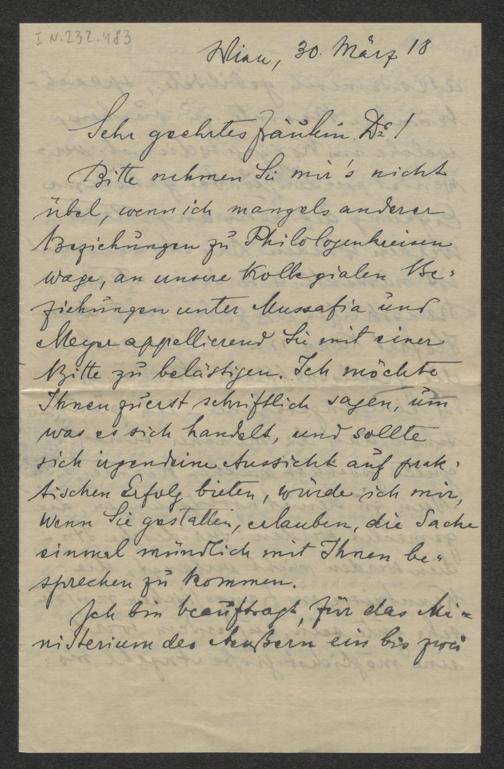 I N. 232.483
Wien, 30. März 18
Sehr geehrtes Fräulein Dr.!
Bitte nehmen Sie mir's nicht
übel, wenn ich mangels anderer
Beziehungen zu Philologenkreisen
wage, an unsere kollegialen Be-
ziehungen unter Mussafia und
Meyer appellierend Sie mit einer
Bitte zu belästigen. Ich möchte
Ihnen zuerst schriftlich sagen, um
was es sich handelt, und sollte
sich irgendeine Aussicht auf prak-
tischen Erfolg bieten, würde ich mir,
wenn Sie gestatten, erlauben, die Sache
einmal mündlich mit Ihnen be-
sprechen zu kommen.
Ich bin beauftragt, für das Mi-
nisterium des Aeußern ein bis zwei